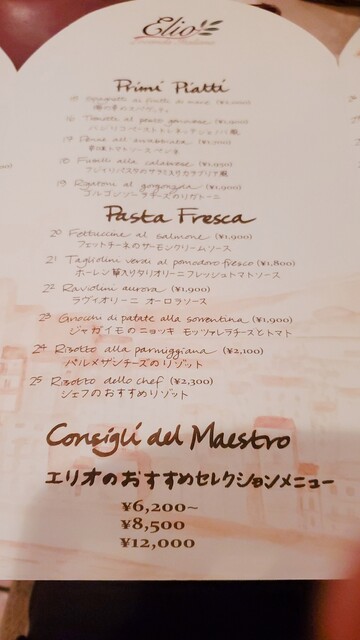 Elio
Primi Piatti
海の幸のスパゲッティ
17 Penne all'arrabbiata
辛口トマトソース ペンネ
18 Fusilli alla calabrese
19 Rigatoni al gorgonzola (¥1,900)
ゴルゴンゾーラチーズのリガトーニ
Pasta Fresca
20 Fettuccine al salmone (¥1,900)
フェットチーネのサーモンクリームソース
21 Tagliolini verdi al pomodoro fresco (¥1,800)
ホーレン草入りタリオリーニフレッシュトマトソース
22 Raviolini aurora (¥1,900)
ラヴィオリーニ オーロラソース
23 Gnocchi di patate alla sorrentina (¥1,900)
ジャガイモのニョッキ モッツァレラチーズとトマト
24 Risotto alla parmiggiana (¥2,100)
パルメザンチーズのリゾット
25 Risotto dello chef (¥2,300)
シェフのおすすめリゾット
Consigli del Maestro
エリオのおすすめセレクションメニュー
¥6,200~
¥8,500
¥12,000